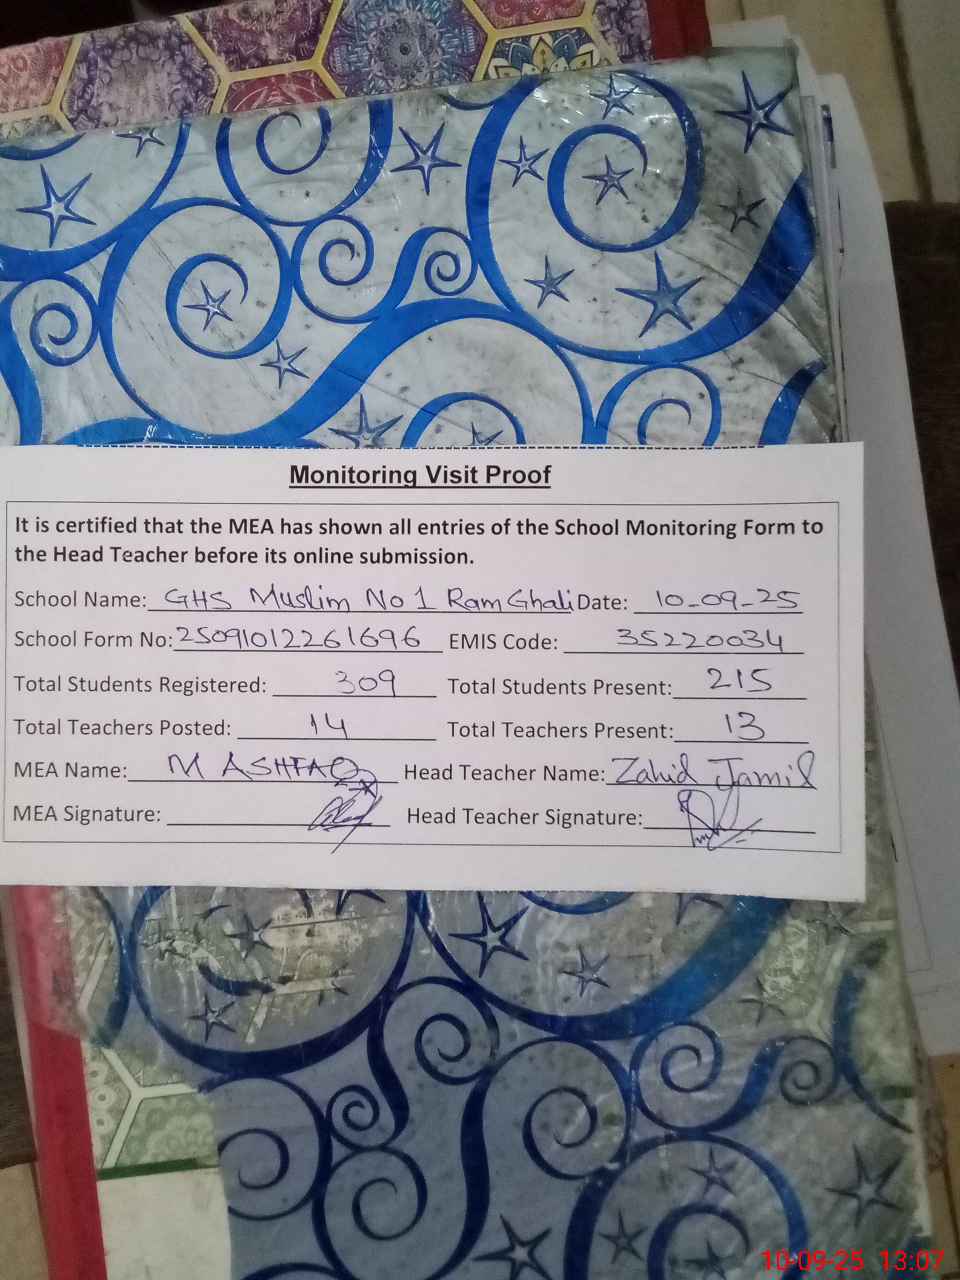 Monitoring Visit Proof
It is certified that the MEA has shown all entries of the School Monitoring Form to
the Head Teacher before its online submission.
School Name: GHS Muslim No 1 Ram Ghali Date: 10-09-25
School Form No: 25091012261696 EMIS Code: 35220034
Total Students Registered: 309 Total Students Present: 215
Total Teachers Posted: 14 Total Teachers Present: 13
MEA Name: M ASHFAQ Head Teacher Name: Zahid Jamil
MEA Signature: Head Teacher Signature:
10-09-25 13:07